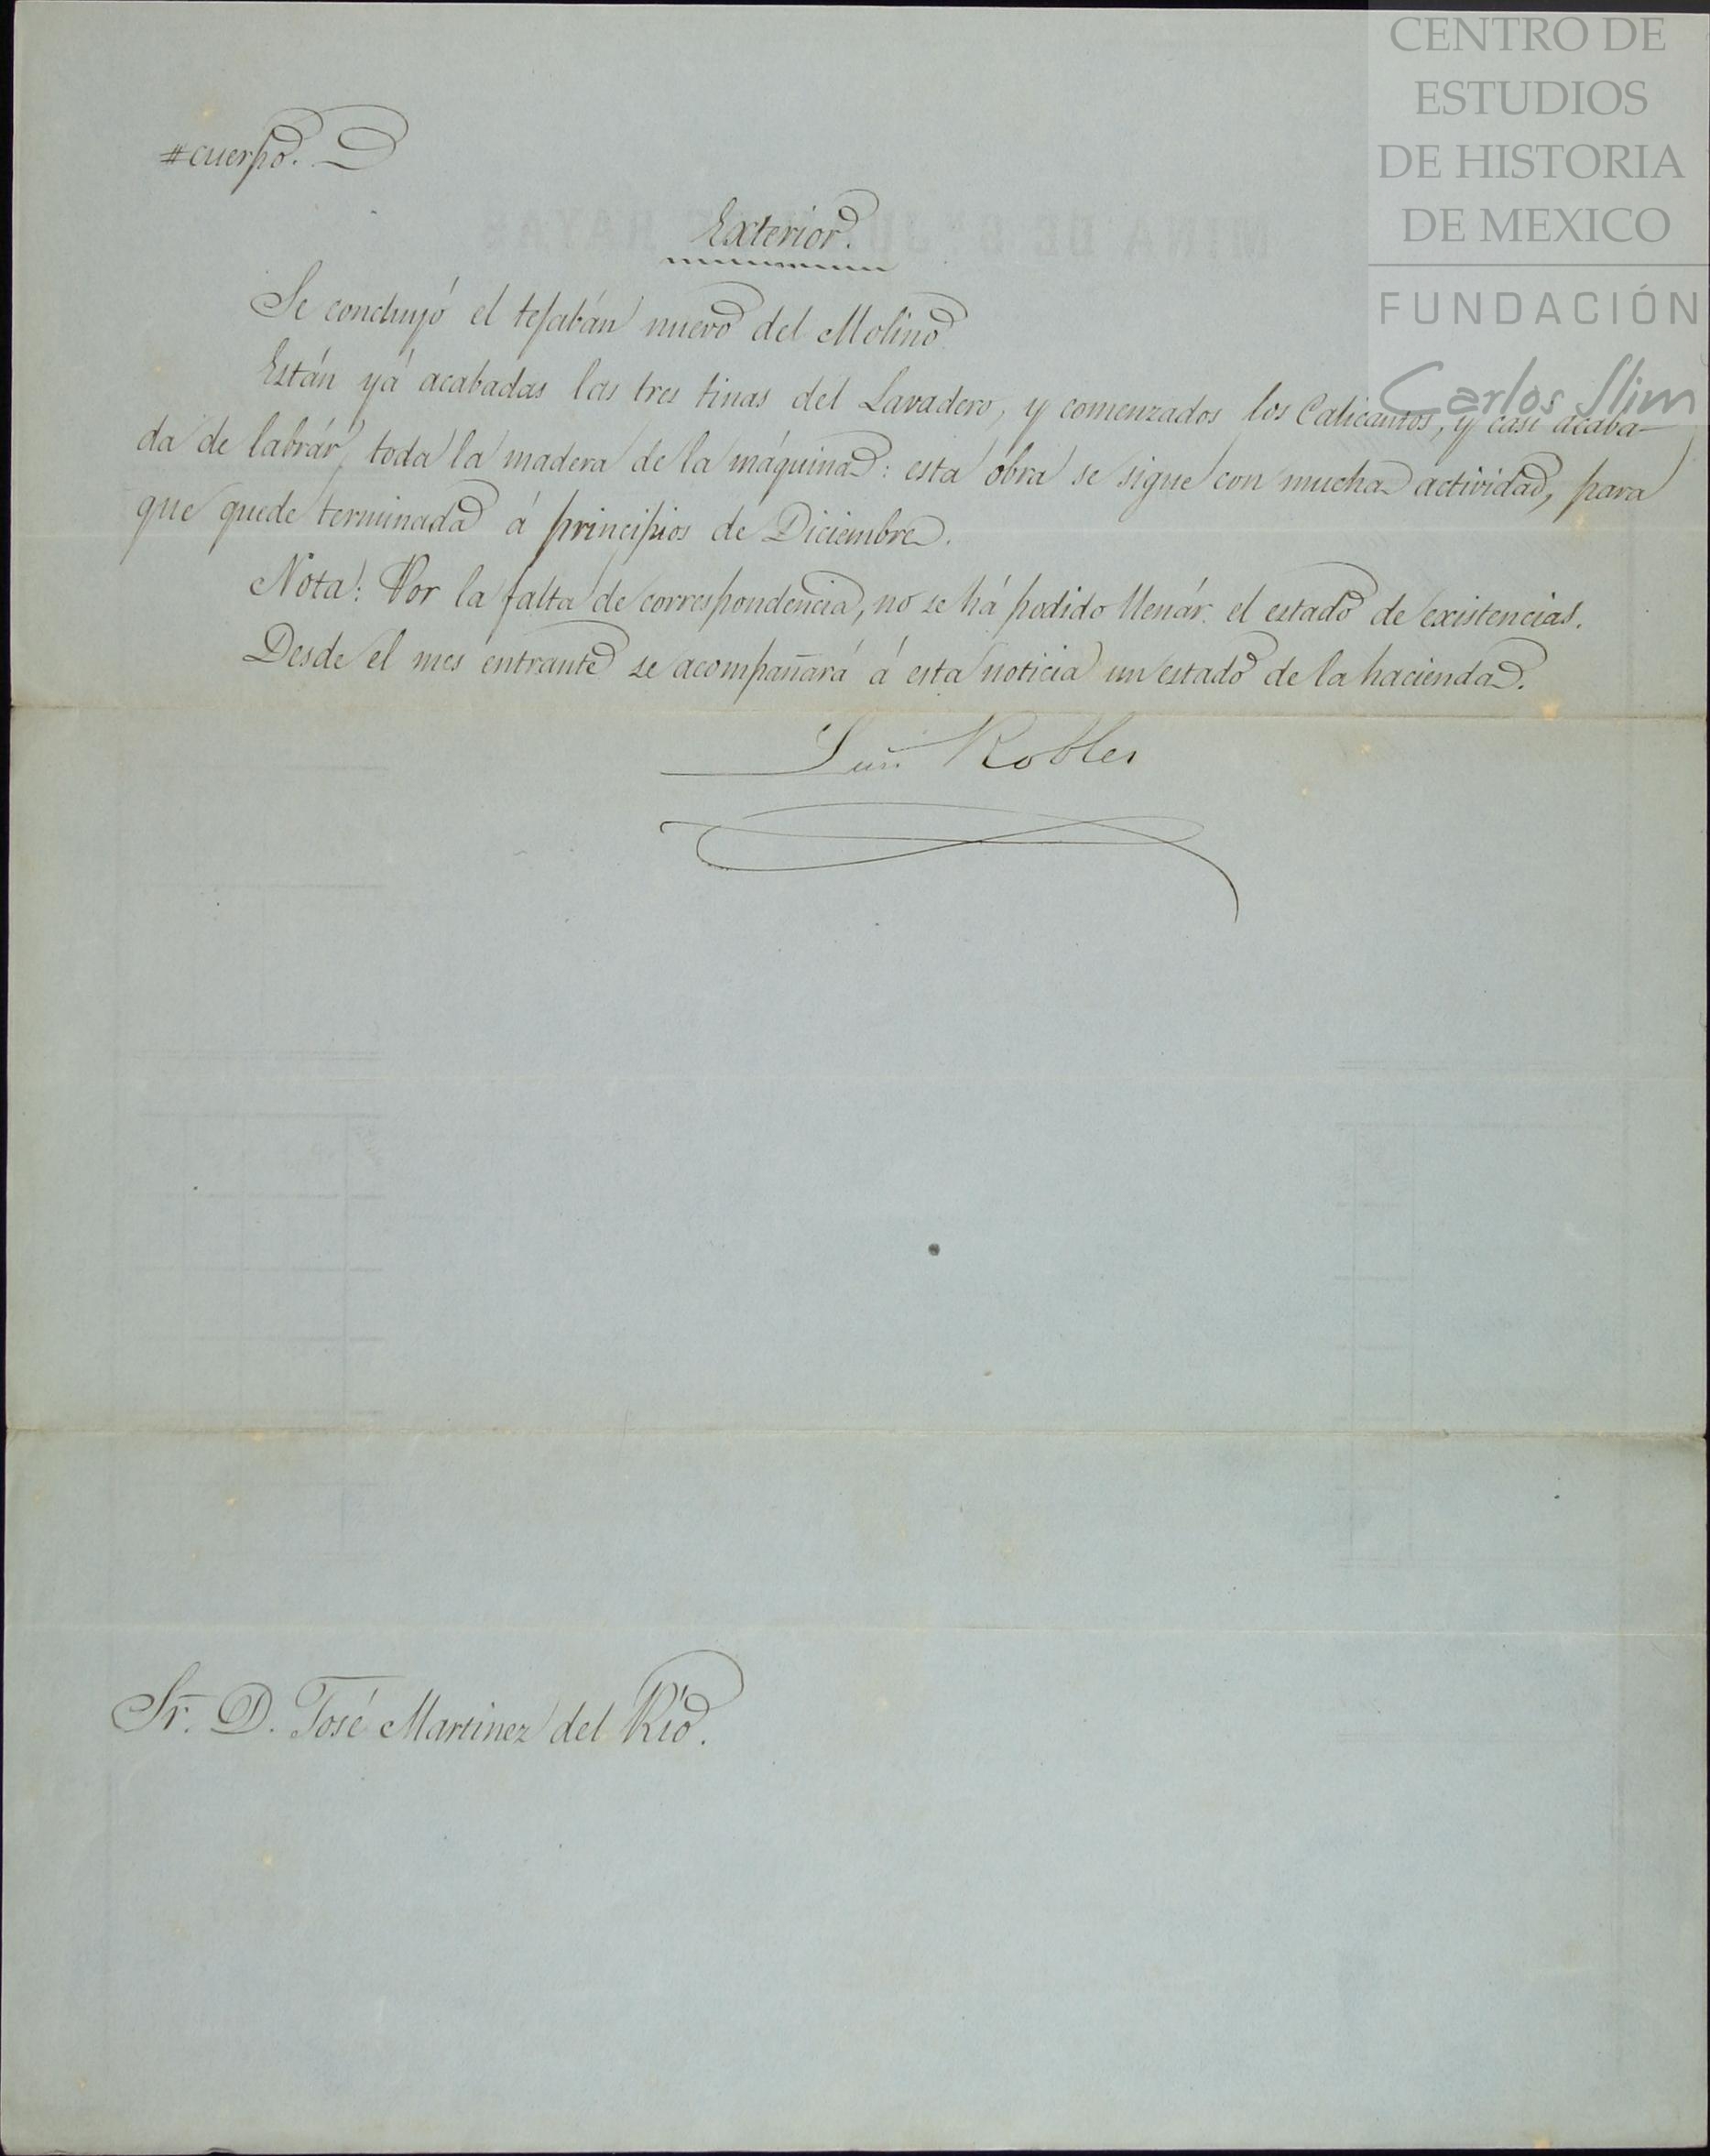 CENTRO DE
ESTUDIOS
DE HISTORIA
DE MEXICO
FUNDACIÓN
Carlos Slim
#cuerpo.
Exterior.
Se concluyó el tejabán nuevo del Molino
Están yá acabadas las tres tinas del Lavadero, y comenzados los Calicantos, y casi acaba-
da de labrár toda la madera de la máquina: esta obra se sigue con mucha actividad, para
que quede terminada á principios de Diciembre.
Nota: Por la falta de correspondencia, no se há podido llenár el estado de existencias.
Desde el mes entrante se acompañará á esta noticia un estado de la hacienda.
Luis Robles
Sr. D. José Martinez del Río.